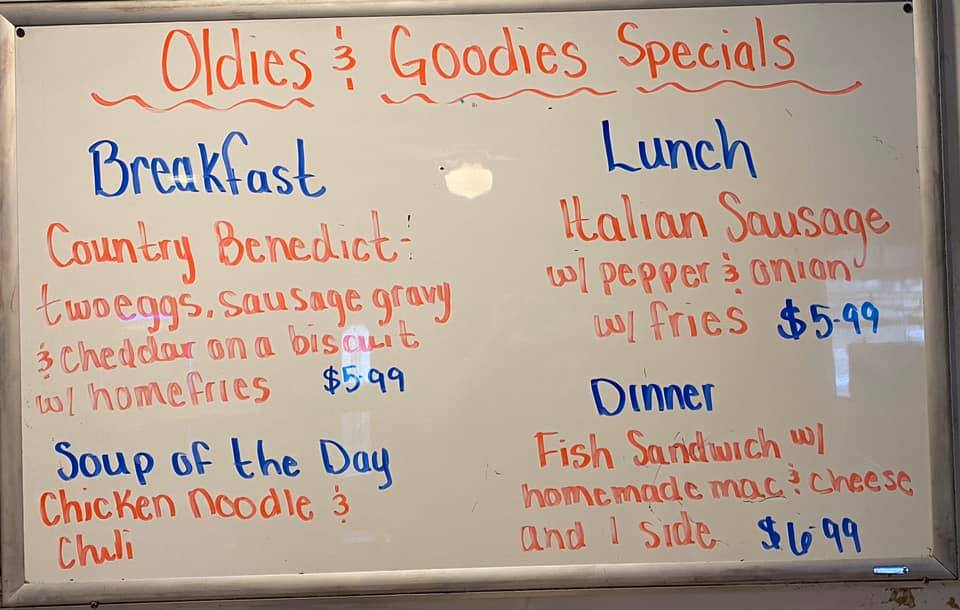 Oldies & Goodies Specials
Breakfast
Country Benedict-
two eggs, sausage gravy
& cheddar on a biscuit
w/ homefries $5.99
Soup of the Day
Chicken noodle &
Chili
Lunch
Italian Sausage
w/ pepper & onion
w/ fries $5.99
Dinner
Fish Sandwich w/
homemade mac & cheese
and 1 side $6.99